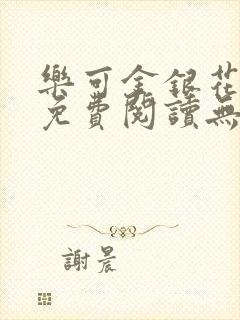 樂可金銀花
免費閱讀無
謝晨